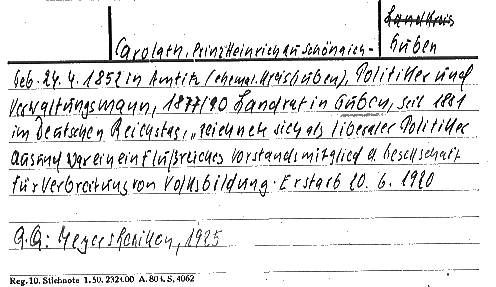 Landkreis
Carolath, Prinz Heinrich zu Schönaich-
Guben
Geb. 24. 4. 1852 in Amtitz (ehemal. Kreis Guben), Politiker und
Verwaltungsmann, 1877/90 Landrat in Guben, seit 1881
im Deutschen Reichstag, „zeichnete sich als liberaler Politiker
aus und war ein einflußreiches Vorstandsmitglied d. Gesellschaft
für Verbreitung von Volksbildung. Er starb 20. 6. 1920
Q.A.: Meyers Lexikon, 1925
Reg. 10. Stichnote 1. 50. 2321.00 A. 801. S. 4062